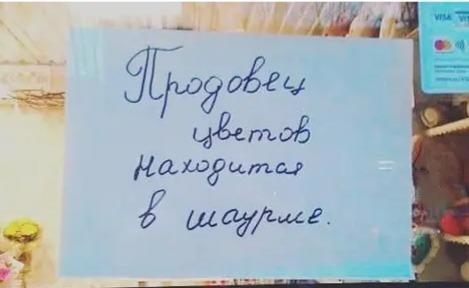 Продовец
цветов
находится
в шаурме.
VISA